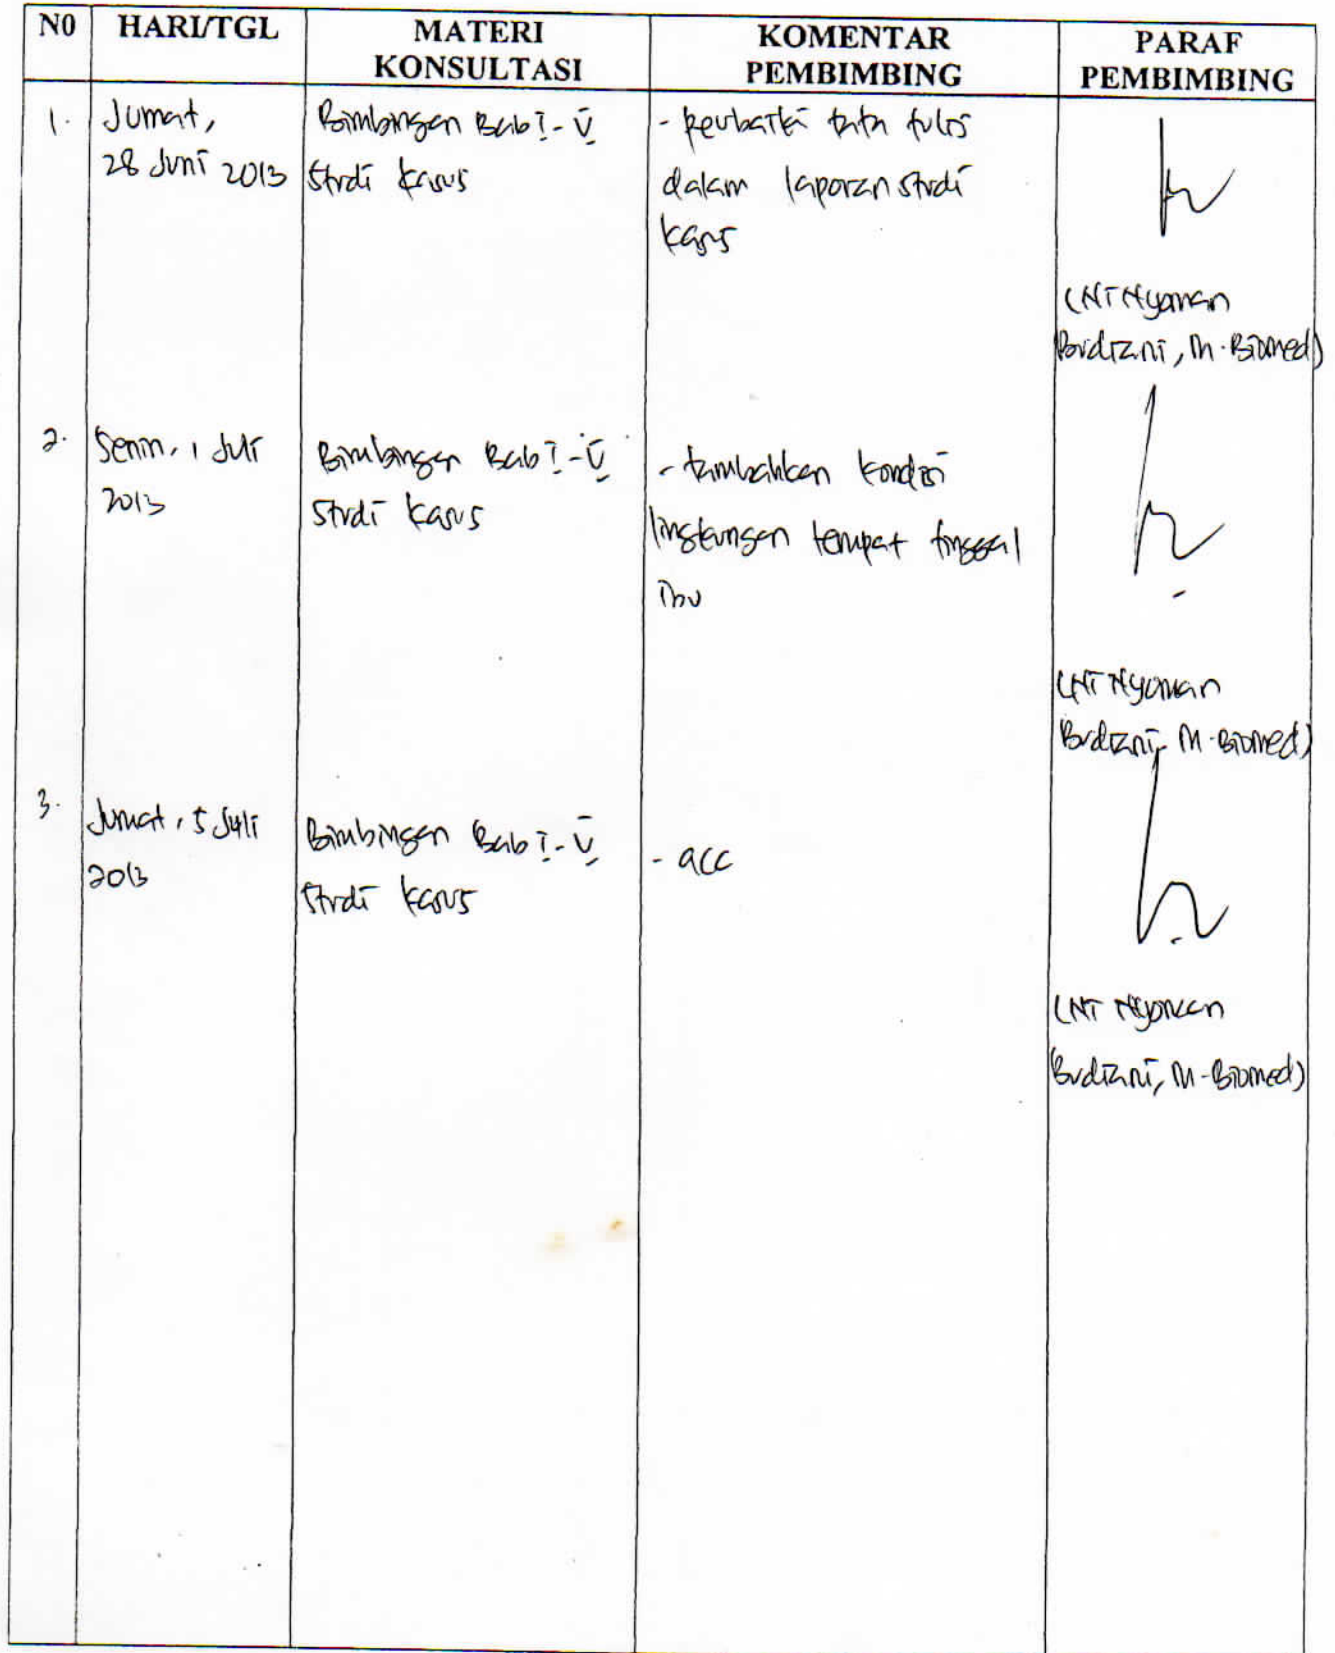 N0 HARI/TGL MATERI KONSULTASI KOMENTAR PEMBIMBING PARAF PEMBIMBING
1. Jumat,
28 Juni 2013
Bimbingan Bab I-V
Studi kasus
- perbaiki tata tulis
dalam laporan studi
kasus
(Ni Nyoman
Budiani, M.Biomed)
2. Senin, 1 Juli
2013
Bimbingan Bab I-V
Studi kasus
- tambahkan kondisi
lingkungan tempat tinggal
ibu
(Ni Nyoman
Budiani, M.Biomed)
3. Jumat, 5 Juli
2013
Bimbingan Bab I-V
Studi kasus
- acc
(Ni Nyoman
Budiani, M-Biomed)